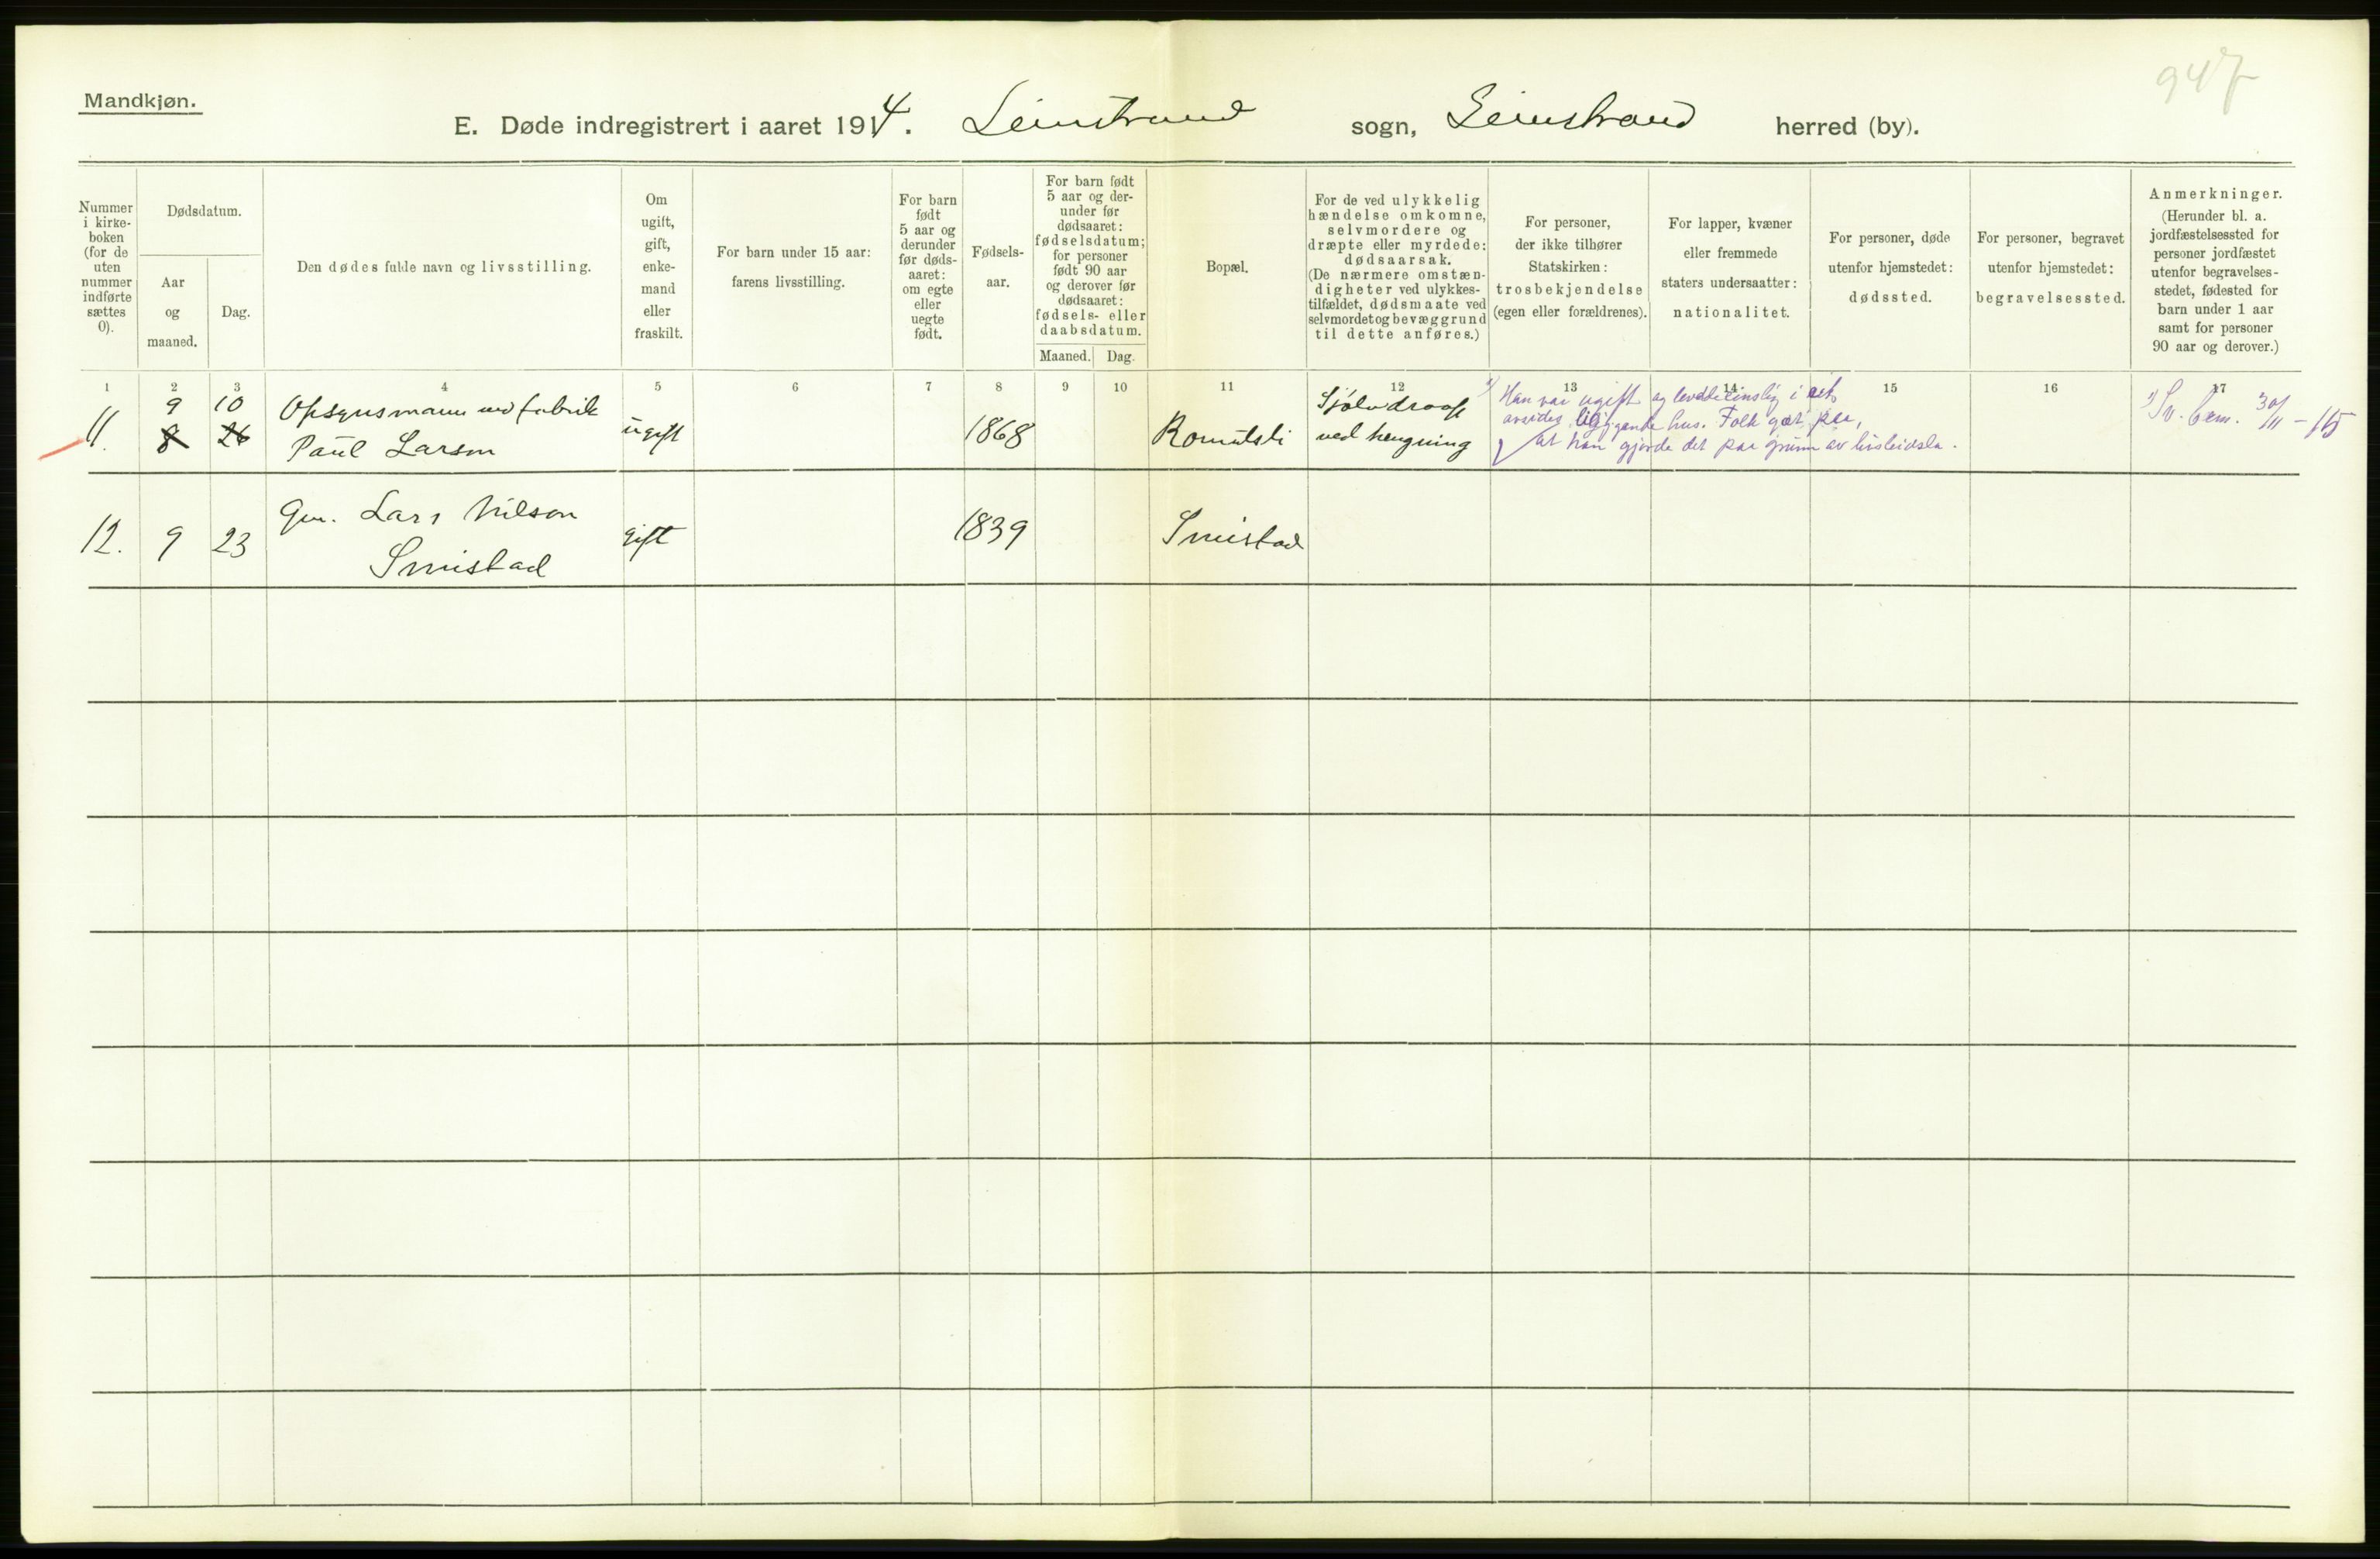 947
Mandkjøn.
E. Døde indregistrert i aaret 1914. Leinstrand sogn, Leinstrand herred (by).
Nummer
i kirke-
boken
(for de
uten
nummer
indførte
sættes
0).
Dødsdatum.
Aar
og
maaned.
Dag.
Den dødes fulde navn og livsstilling.
Om
ugift,
gift,
enke-
mand
eller
fraskilt.
For barn under 15 aar:
farens livsstilling.
For barn
født
5 aar og
derunder
før døds-
aaret:
om egte
eller
uegte
født.
Fødsels-
aar.
For barn født
5 aar og der-
under før
dødsaaret:
fødselsdatum;
for personer
født 90 aar
og derover før
dødsaaret:
fødsels- eller
daabsdatum.
Maaned.
Dag.
Bopæl.
For de ved ulykkelig
hændelse omkomne,
selvmordere og
dræpte eller myrdede:
dødsaarsak.
(De nærmere omstæn-
digheter ved ulykkes-
tilfældet, dødsmaate ved
selvmordet og bevæggrund
til dette anføres.)
For personer,
der ikke tilhører
Statskirken:
trosbekjendelse
(egen eller forældrenes).
For lapper, kvæner
eller fremmede
staters undersaatter:
nationalitet.
For personer, døde
utenfor hjemstedet:
dødssted.
For personer, begravet
utenfor hjemstedet:
begravelsessted.
Anmerkninger.
(Herunder bl. a.
jordfæstelsessted for
personer jordfæstet
utenfor begravelses-
stedet, fødested for
barn under 1 aar
samt for personer
90 aar og derover.)
1 2 3 4 5 6 7 8 9 10 11 12 13 14 15 16 17
11.
9
8
10
26
Opsynsmann ved fabrik
Paul Larsen
ugift
1868
Romulsli
Sjølvdraap
ved hengning
1) Han var ugift og levde einslig i eit
avsides liggjande hus. Folk gæt paa,
at han gjorde det paa grunn av livsleidsla.
1) Sv. bem. 30/11 - 15
12. 9 23
Gm. Lars Nilson
Smistad
gift
1839
Smistad